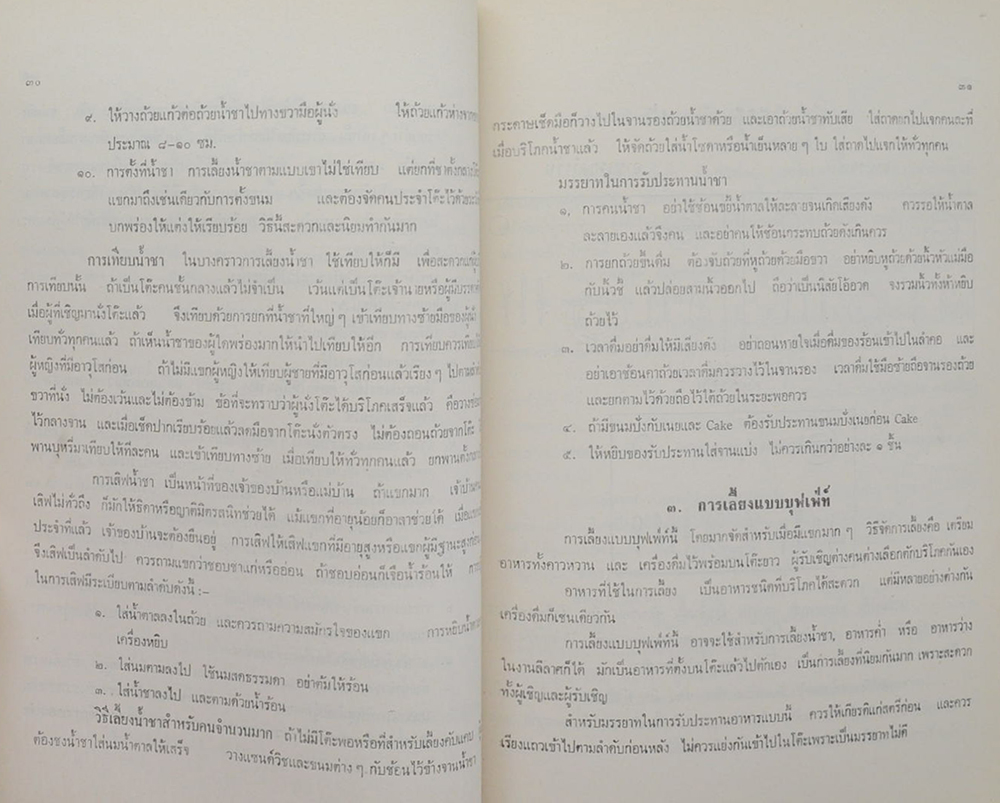 ๓๐
๙. ให้วางถ้วยแก้วต่อถ้วยน้ำชาไปทางขวามือผู้นั่ง ให้ถ้วยแก้วห่างจาก
ประมาณ ๘-๑๐ ซม.
๑๐. การตั้งที่น้ำชา การเลี้ยงน้ำชาตามแบบเขาไม่ใช่เทียบ แต่ยกที่ชาตั้งกลาง
แขกมาถึงเช่นเดียวกับการตั้งขนม และต้องจัดคนประจำโต๊ะไว้ด้วย
บกพร่องให้แต่งให้เรียบร้อย วิธีนี้สะดวกและนิยมทำกันมาก
การเทียบน้ำชา ในบางคราวการเลี้ยงน้ำชา ใช้เทียบให้ก็มี เพื่อสะดวก
การเทียบนั้น ถ้าเป็นโต๊ะคนชั้นกลางแล้วไม่จำเป็น เว้นแต่เป็นโต๊ะเจ้านายหรือผู้มี
เมื่อผู้ที่เชิญมานั่งโต๊ะแล้ว จึงเทียบด้วยการยกที่น้ำชาที่ใหญ่ ๆ เข้าเทียบทางซ้ายมือของ
เทียบทั่วทุกคนแล้ว ถ้าเห็นน้ำชาของผู้ใดพร่องมากให้นำไปเทียบให้อีก การเทียบควรเทียบ
ผู้หญิงที่มีอาวุโสก่อน ถ้าไม่มีแขกผู้หญิงให้เทียบผู้ชายที่มีอาวุโสก่อนแล้วเรียง ๆ ไปตาม
ขวาที่นั่ง ไม่ต้องเว้นและไม่ต้องข้าม ข้อที่จะทราบว่าผู้นั่งโต๊ะได้บริโภคเสร็จแล้ว คือวาง
ไว้กลางจาน และเมื่อเช็ดปากเรียบร้อยแล้วลดมือจากโต๊ะนั่งตัวตรง ไม่ต้องถอนถ้วยจากโต๊ะ
พานบุหรี่มาเทียบให้ทีละคน และเข้าเทียบทางซ้าย เมื่อเทียบให้ทั่วทุกคนแล้ว ยกพานตั้ง
การเสิฟน้ำชา เป็นหน้าที่ของเจ้าของบ้านหรือแม่บ้าน ถ้าแขกมาก เจ้าบ้าน
เสิฟไม่ทั่วถึง ก็มักให้ธิดาหรือญาติมิตรสนิทช่วยได้ แม้แขกที่อายุน้อยก็อาสาช่วยได้ เมื่อ
ประจำที่แล้ว เจ้าของบ้านจะต้องยืนอยู่ การเสิฟให้เสิฟแขกที่มีอายุสูงหรือแขกผู้มีฐานะสูงก่อน
จึงเสิฟเป็นลำดับไป ควรถามแขกว่าชอบชาแก่หรืออ่อน ถ้าชอบอ่อนก็เจือน้ำร้อนให้
ในการเสิฟมีระเบียบตามลำดับดังนี้ :–
๑. ใส่น้ำตาลลงในถ้วย และควรถามความสมัครใจของแขก การหยิบน้ำตาล
เครื่องหยิบ
๒. ใส่นมตามลงไป ใช้นมสดธรรมดา อย่าต้มให้ร้อน
๓. ใส่น้ำชาลงไป และตามด้วยน้ำร้อน
วิธีเลี้ยงน้ำชาสำหรับคนจำนวนมาก ถ้าไม่มีโต๊ะพอหรือที่สำหรับเลี้ยงคับแคบ
ต้องชงน้ำชาใส่นมน้ำตาลให้เสร็จ วางแซนด์วิชและขนมต่าง ๆ กับช้อนไว้ข้างจานน้ำชา
๓๑
กระดาษเช็ดมือก็วางไปในจานรองถ้วยน้ำชาด้วย และเอาถ้วยน้ำชาทับเสีย ใส่ถาดยกไปแจกคนละที่
เมื่อบริโภคน้ำชาแล้ว ให้จัดถ้วยใส่น้ำโซดาหรือน้ำเย็นหลาย ๆ ใบ ใส่ถาดไปแจกให้ทั่วทุกคน
มรรยาทในการรับประทานน้ำชา
๑. การคนน้ำชา อย่าใช้ช้อนขยี้น้ำตาลให้ละลายจนเกิดเสียงดัง ควรรอให้น้ำตาล
ละลายเองแล้วจึงคน และอย่าคนให้ช้อนกระทบถ้วยดังเกินควร
๒. การยกถ้วยขึ้นดื่ม ต้องจับถ้วยที่หูถ้วยด้วยมือขวา อย่าหยิบหูถ้วยด้วยนิ้วหัวแม่มือ
กับนิ้วชี้ แล้วปล่อยสามนิ้วออกไป ถือว่าเป็นนิสัยโอ้อวด จงรวมนิ้วทั้งห้าหยิบ
ถ้วยไว้
๓. เวลาดื่มอย่าดื่มให้มีเสียงดัง อย่าถอนหายใจเมื่อดื่มของร้อนเข้าไปในลำคอ และ
อย่าเอาช้อนคาถ้วยเวลาดื่มควรวางไว้ในจานรอง เวลาดื่มใช้มือซ้ายถือจานรองถ้วย
และยกตามไว้ด้วยถือไว้ใต้ถ้วยในระยะพอควร
๔. ถ้ามีขนมปังกับเนยและ Cake ต้องรับประทานขนมปังเนยก่อน Cake
๕. ให้หยิบของรับประทานใส่จานแบ่ง ไม่ควรเกินกว่าอย่างละ ๑ ชิ้น
๓. การเลี้ยงแบบบุฟเฟ่ท์
การเลี้ยงแบบบุฟเฟ่ท์นี้ โดยมากจัดสำหรับเมื่อมีแขกมาก ๆ วิธีจัดการเลี้ยงคือ เตรียม
อาหารทั้งคาวหวาน และ เครื่องดื่มไว้พร้อมบนโต๊ะยาว ผู้รับเชิญต่างคนต่างเลือกตักบริโภคกันเอง
อาหารที่ใช้ในการเลี้ยง เป็นอาหารชนิดที่บริโภคได้สะดวก แต่มีหลายอย่างต่างกัน
เครื่องดื่มก็เช่นเดียวกัน
การเลี้ยงแบบบุฟเฟ่ท์นี้ อาจจะใช้สำหรับการเลี้ยงน้ำชา, อาหารค่ำ หรือ อาหารว่าง
ในงานลีลาศก็ได้ มักเป็นอาหารที่ตั้งบนโต๊ะแล้วไปตักเอง เป็นการเลี้ยงที่นิยมกันมาก เพราะสะดวก
ทั้งผู้เชิญและผู้รับเชิญ
สำหรับมรรยาทในการรับประทานอาหารแบบนี้ ควรให้เกียรติแก่สตรีก่อน และควร
เรียงแถวเข้าไปตามลำดับก่อนหลัง ไม่ควรแย่งกันเข้าไปในโต๊ะเพราะเป็นมรรยาทไม่ดี